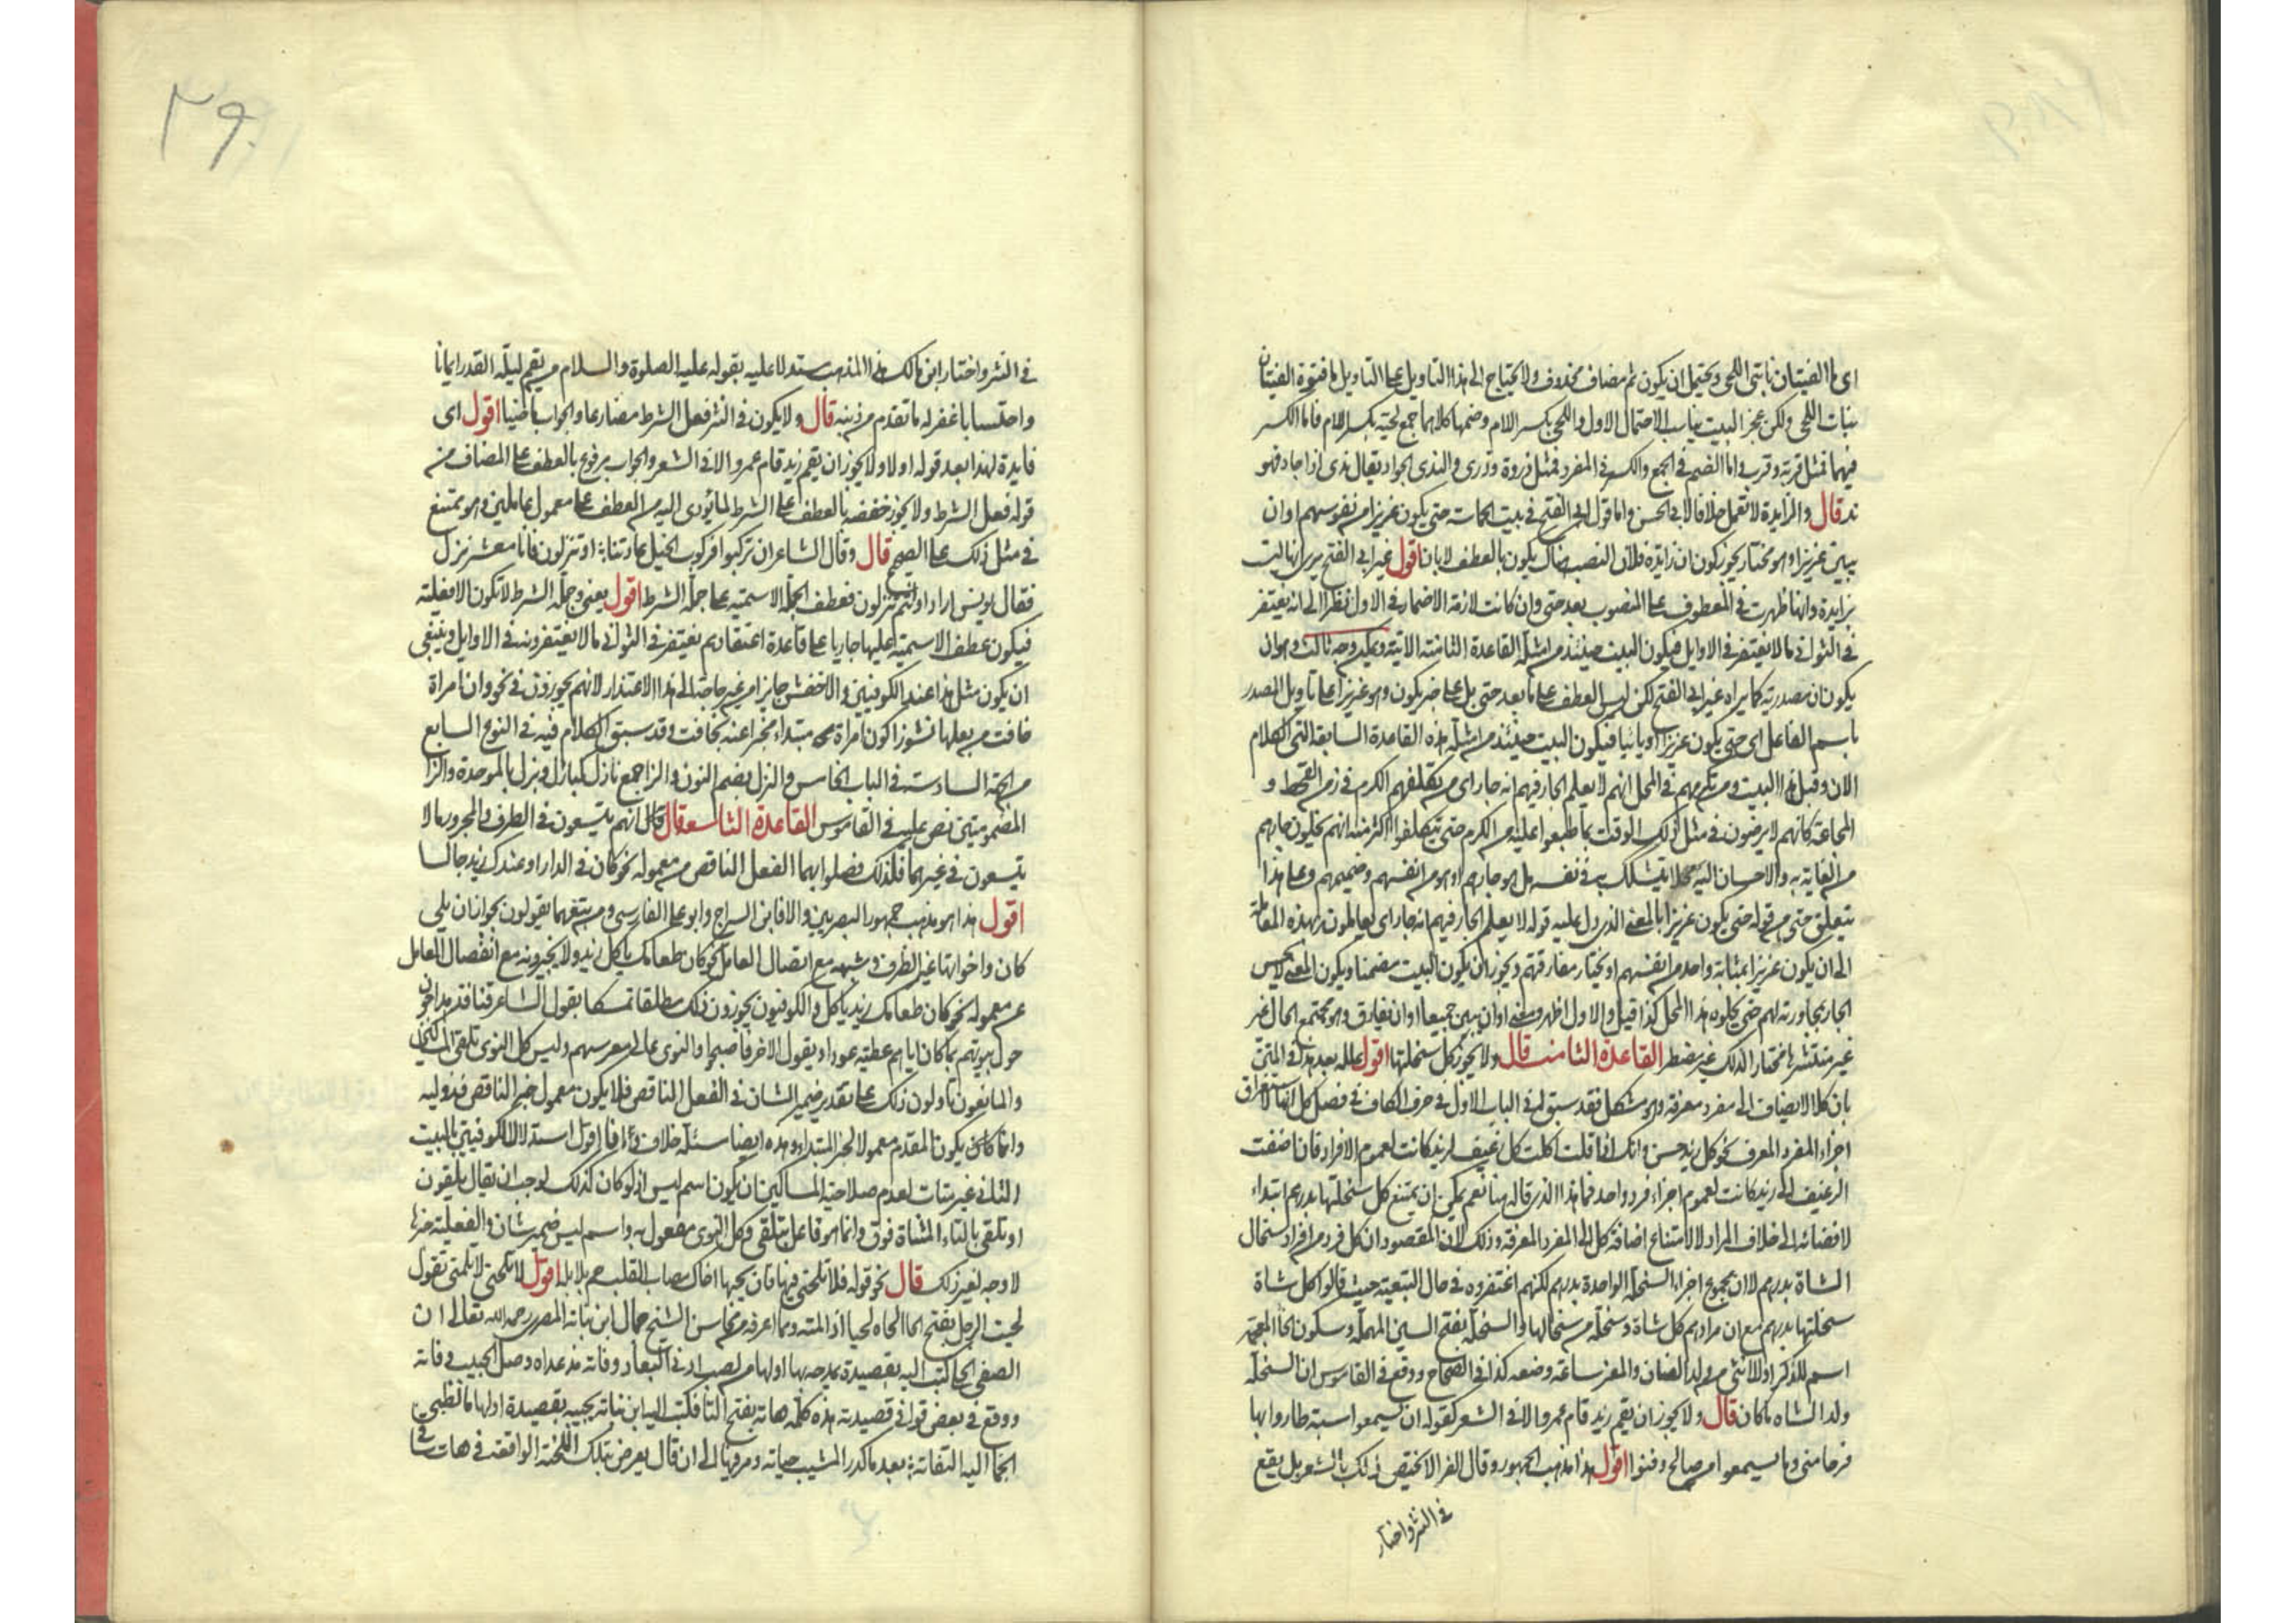 اى ما الفتيان نابتى اللحى ويحتمل ان يكون ثم مضاف محذوف ولا يحتاج الى هذا التاويل على التاويل ما فتوة الفتيان
بنبات اللحى ولكن عجز البيت يناسب الاحتمال الاول واللحى بكسر اللام وضمها كلاهما جمع لحية بكسر اللام فاما الكسر
فيهما فمثل قربة وقرب واما الضم فى الجمع والكسر فى المفرد فمثل ذروة وذرى والندى الجواد يقال ندى اذا جاد فهو
ند قال والزايدة لا تعمل خلافا لابى الحسن واما قول ابى الفتح فى بيت الحماسة حتى يكون عزيزا من نفوسهم او ان
يبين عزيزا وهو مختار يجوز كون ان زايدة فلان النصب هنا يكون بالعطف لا بان اقول غير ابى الفتح يرى انها ليست
بزايدة وانها ظهرت فى المعطوف على المنصوب بعد حتى وان كانت لازمة الاضمار فى الاول نظرا الى انه يغتفر
فى الثوانى ما لا يغتفر فى الاوايل فيكون البيت حينئذ من امثلة القاعدة الثامنة الاتية ويمكن وجه ثالث وهو ان
يكون ان مصدرية كما يراه غير ابى الفتح لكن ليس العطف على ما بعد حتى بل على خبر يكون وهو عزيزا على تاويل المصدر
باسم الفاعل اى حتى يكون عزيزا او باينا فيكون البيت حينئذ من امثلة هذه القاعدة السابقة التى الكلام
الان وقبل هذا البيت ومن تكرمهم فى المحل انهم لا يعلم الجار فيهم انه جار اى من تكلفهم الكرم فى زمن القحط و
المجاعة كانهم لا يرضون فى مثل ذلك الوقت بما طبعوا عليه من الكرم حتى يتكلفوا اكثر منه انهم يحلون جارهم
من العناية به والاحسان اليه محلا يتشكك فى نفسه هل هو جارهم او هو من انفسهم وصميمهم وعلى هذا
يتعلق حتى من قوله حتى يكون عزيزا بالمعنى الذى دل عليه قوله لا يعلم الجار فيهم انه جار اى يعاملونه بهذه المعاملة
الى ان يكون عزيزا بمثابة واحد من انفسهم او يختار مفارقتهم ويجوز ان يكون البيت مضمنا ويكون المعنى لا يحس
الجار بمجاورته لهم حتى يكون هذا المحل كذا قيل والاول اظهر ومعنى او ان يبين جميعا او ان يفارق وهو مجتمع الحال غير
غير منتشرها مختار الذلك غير مضطر القاعدة الثامنة قال ولا يجوز كل سخلتها اقول علله بعد هذا فى المتن
بان كلا لا يضاف الى مفرد معرفة وهو مشكل فقد سبق له فى الباب الاول فى حرف الكاف فى فصل كل انها لاستغراق
اجزاء المفرد المعرف نحو كل زيد حسن وانك اذا قلت اكلت كل رغيف لزيد كانت لعموم الافراد فان اضفت
الرغيف الى زيد كانت لعموم اجزاء فرد واحد فما هذا الذى قاله هنا نعم يمكن ان يمتنع كل سخلتها بدرهم ابتداء
لافضائه الى خلاف المراد لا لامتناع اضافة كل الى المفرد المعرفة وذلك لان المقصود ان كل فرد من افراد سخال
الشاة بدرهم لا ان مجموع اجزاء السخلة الواحدة بدرهم لكنهم اغتفروه فى حال التبعية حيث قالوا كل شاة
سخلتها بدرهم مع ان مرادهم كل شاة وسخلة من سخالها والسخلة بفتح السين المهملة وسكون الخا المعجمة
اسم للذكر او للانثى من ولد الضان والمعز ساعة وضعه كذا فى الصحاح ووقع فى القاموس ان السخلة
ولد الشاة ما كان قال ولا يجوز ان يقم زيد قام عمرو الا فى الشعر كقوله ان يسمعوا سبة طاروا بها
فرحا منى وما يسمعوا من صالح دفنوا اقول هذا مذهب الجمهور وقال الفرا لا يختص ذلك بالشعر بل يقع
فى النثر واختار
٣٩٠
فى النثر واختار ابن مالك هذا المذهب مستدلا عليه بقوله عليه الصلوة والسلام من يقم ليلة القدر ايمانا
واحتسابا غفر له ما تقدم من ذنبه قال ولا يكون فى النثر فعل الشرط مضارعا والجواب ماضيا اقول اى
فايدة لهذا بعد قوله اولا ولا يجوز ان يقم زيد قام عمرو الا فى الشعر والجواب مرفوع بالعطف على المضاف من
قوله فعل الشرط ولا يجوز خفضه بالعطف على الشرط لما يؤدى اليه من العطف على معمولى عاملين وهو ممتنع
فى مثل ذلك على الصحيح قال وقال الشاعر ان تركبوا فركوب الخيل عادتنا او تنزلون فانا معشر نزل
فقال يونس اراد او انتم تنزلون فعطف الجملة الاسمية على جملة الشرط اقول يعنى وجملة الشرط لا تكون الا فعلية
فيكون عطف الاسمية عليها جاريا على قاعدة اعتقادهم يغتفر فى الثوانى ما لا يغتفرونه فى الاوايل وينبغى
ان يكون مثل هذا عند الكوفيين والاخفش جايزا من غير حاجة الى هذا الاعتذار لانهم يجوزون فى نحو وان امراة
خافت من بعلها نشوزا كون امراة مبتداء مخبرا عنه بخافت وقد سبق الكلام فيه فى النوع السابع
من الجهة السادسة فى الباب الخامس والنزل بضم النون والزا جمع نازل كبازل وبزل بالموحدة والزا
المضمومتين نص عليه فى القاموس القاعدة التاسعة قال انهم يتسعون فى الظرف والمجرور ما لا
يتسعون فى غيرهما فلذلك فصلوا بهما الفعل الناقص من معموله نحو كان فى الدار او عندك زيد جالسا
اقول هذا هو مذهب جمهور البصريين والا فابن السراج وابو على الفارسى ومن تبعهما يقولون بجواز ان يلى
كان واخواتها غير الظرف وشبهه مع اتصال العامل نحو كان طعامك ياكل زيد ولا يجيزونه مع انفصال العامل
عن معموله نحو كان طعامك زيد ياكل والكوفيون يجوزون ذلك مطلقا تمسكا بقول الشاعر قنافذ هداجون
حول بيوتهم بما كان اياهم عطية عودا وبقول الاخر فاصبحوا والنوى عالى معرسهم وليس كل النوى تلقى المساكين
والمانعون تاولون ذلك على تقدير ضمير الشان فى الفعل الناقص فلا يكون معمول خبر الناقص قد وليه
وانما كان يكون المقدم معمولا لخبر المبتداء وهذه ايضا مسئلة خلاف اقول استدلال الكوفيين بالبيت
الثانى غير متات لعدم صلاحية المساكين ان يكون اسم ليس اذ لو كان كذلك لوجب ان يقال يلقون
او تلقى بالتاء المثناة فوق وانما هو فاعل يتلقى وكل النوى مفعول به واسم ليس ضمير شان والفعلية خبرها
لا وجه لغير ذلك قال نحو قوله فلا تلحنى فيها فان بحبها اخاك مصاب القلب جم بلابله اقول لا تلحنى لا تلمنى تقول
لحيت الرجل بفتح الحا الحاه لحيا اذا لمته وما اعرفه من محاسن الشيخ جمال ابن نباتة المصرى رحمه الله تعالى ان
الصفى الحلى كتب اليه بقصيدة يمدحه بها اولها من لصب ادنى البعاد وفاته مذ عداه وصل الحبيب وفاته
ووقع فى بعض قوافى قصيدته هذه كلمة هاته بفتح التا فكتب اليه ابن نباتة يجيبه بقصيدة اولها ما لظبى
الحما اليه التفاته بعد ما كدر المشيب حياته ومر فيها الى ان قال يعرض بتلك اللحنة الواقعة فى هات